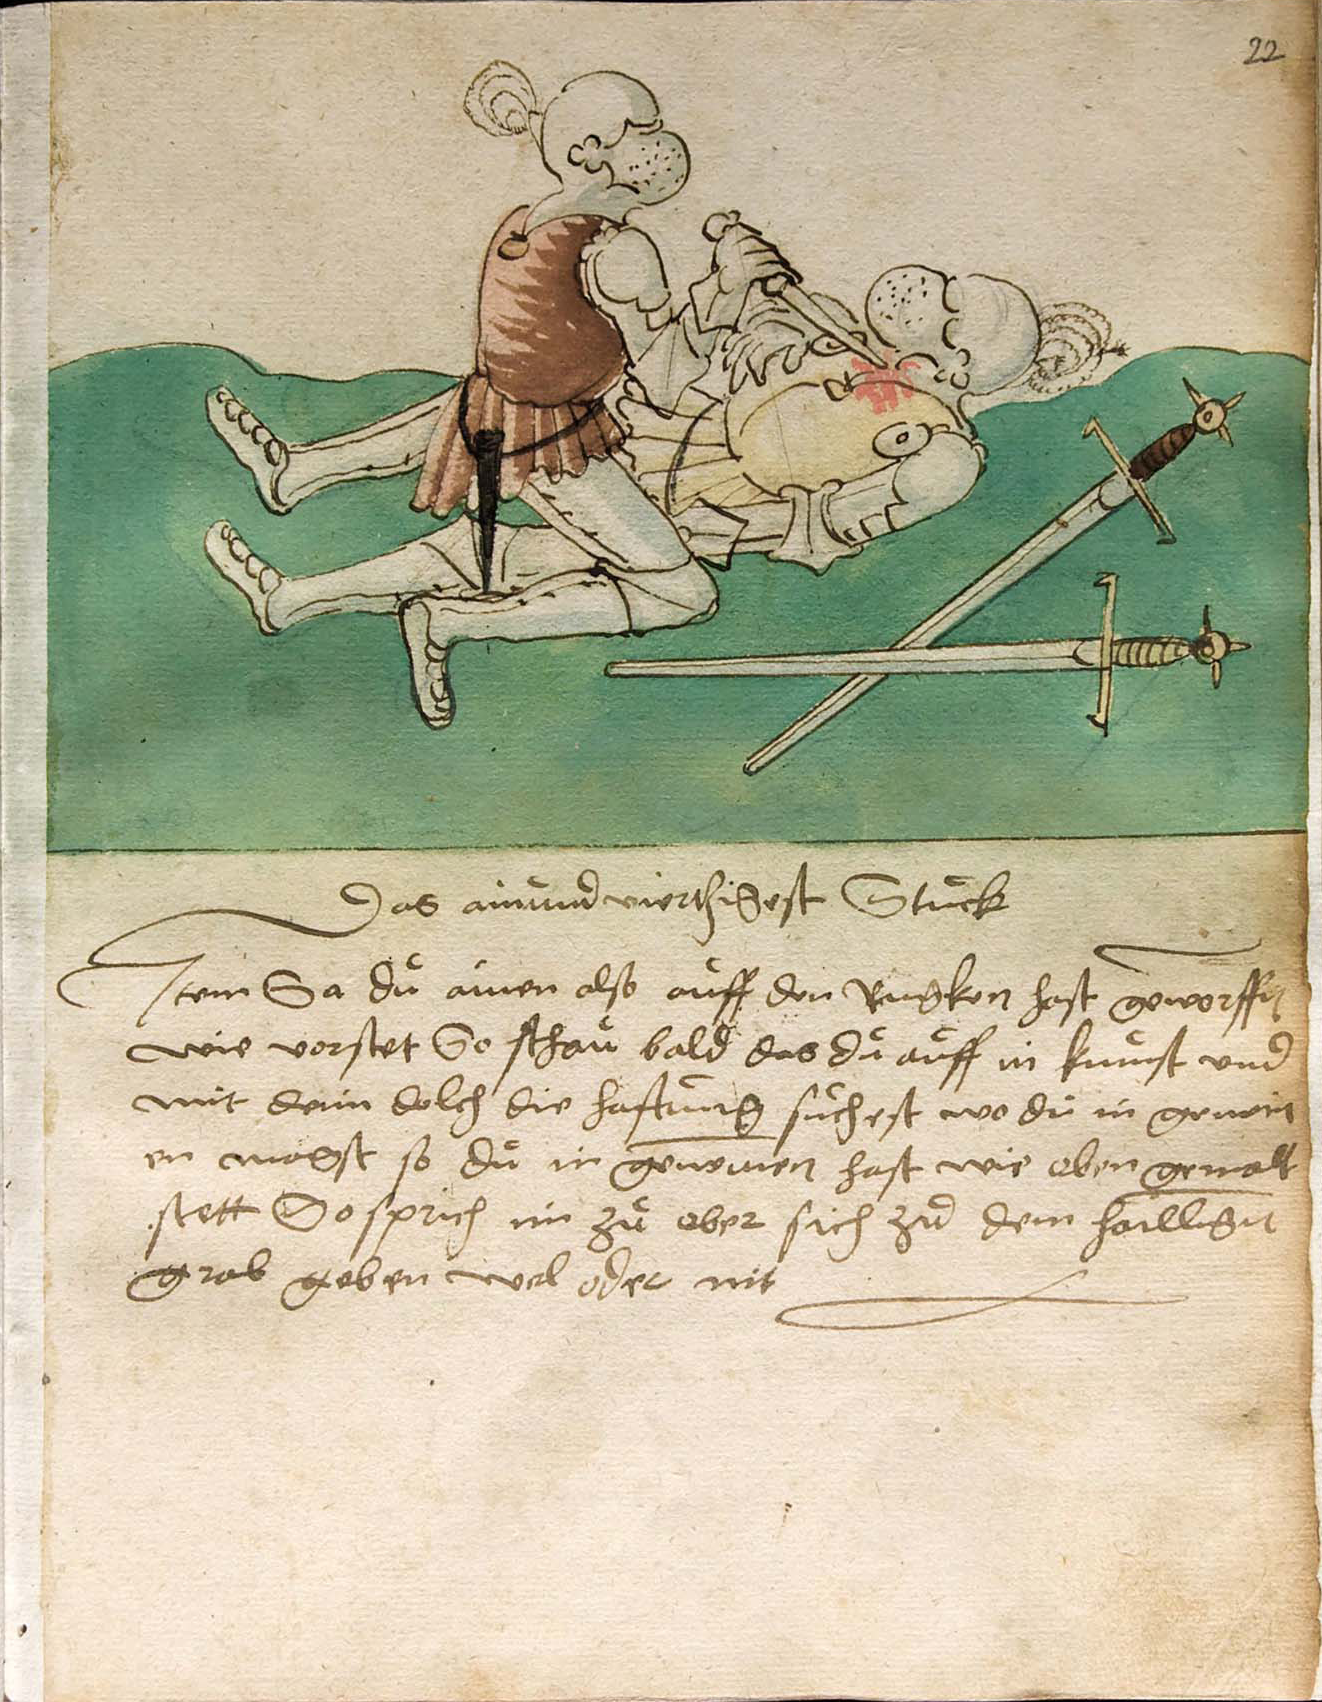 22
Das ainundvierthigest Stuck
Item Sa du ainen also auff den Rugken hast geworffn
wie vorstet So schau bald das du auff in kumst und
mit deim dolch die haftung suchest wo du in gewin
en magst so du in genomen hast wie oben gemalt
stett So sprich im zu aber sich zu dem hailligen
grab geben wel oder nit